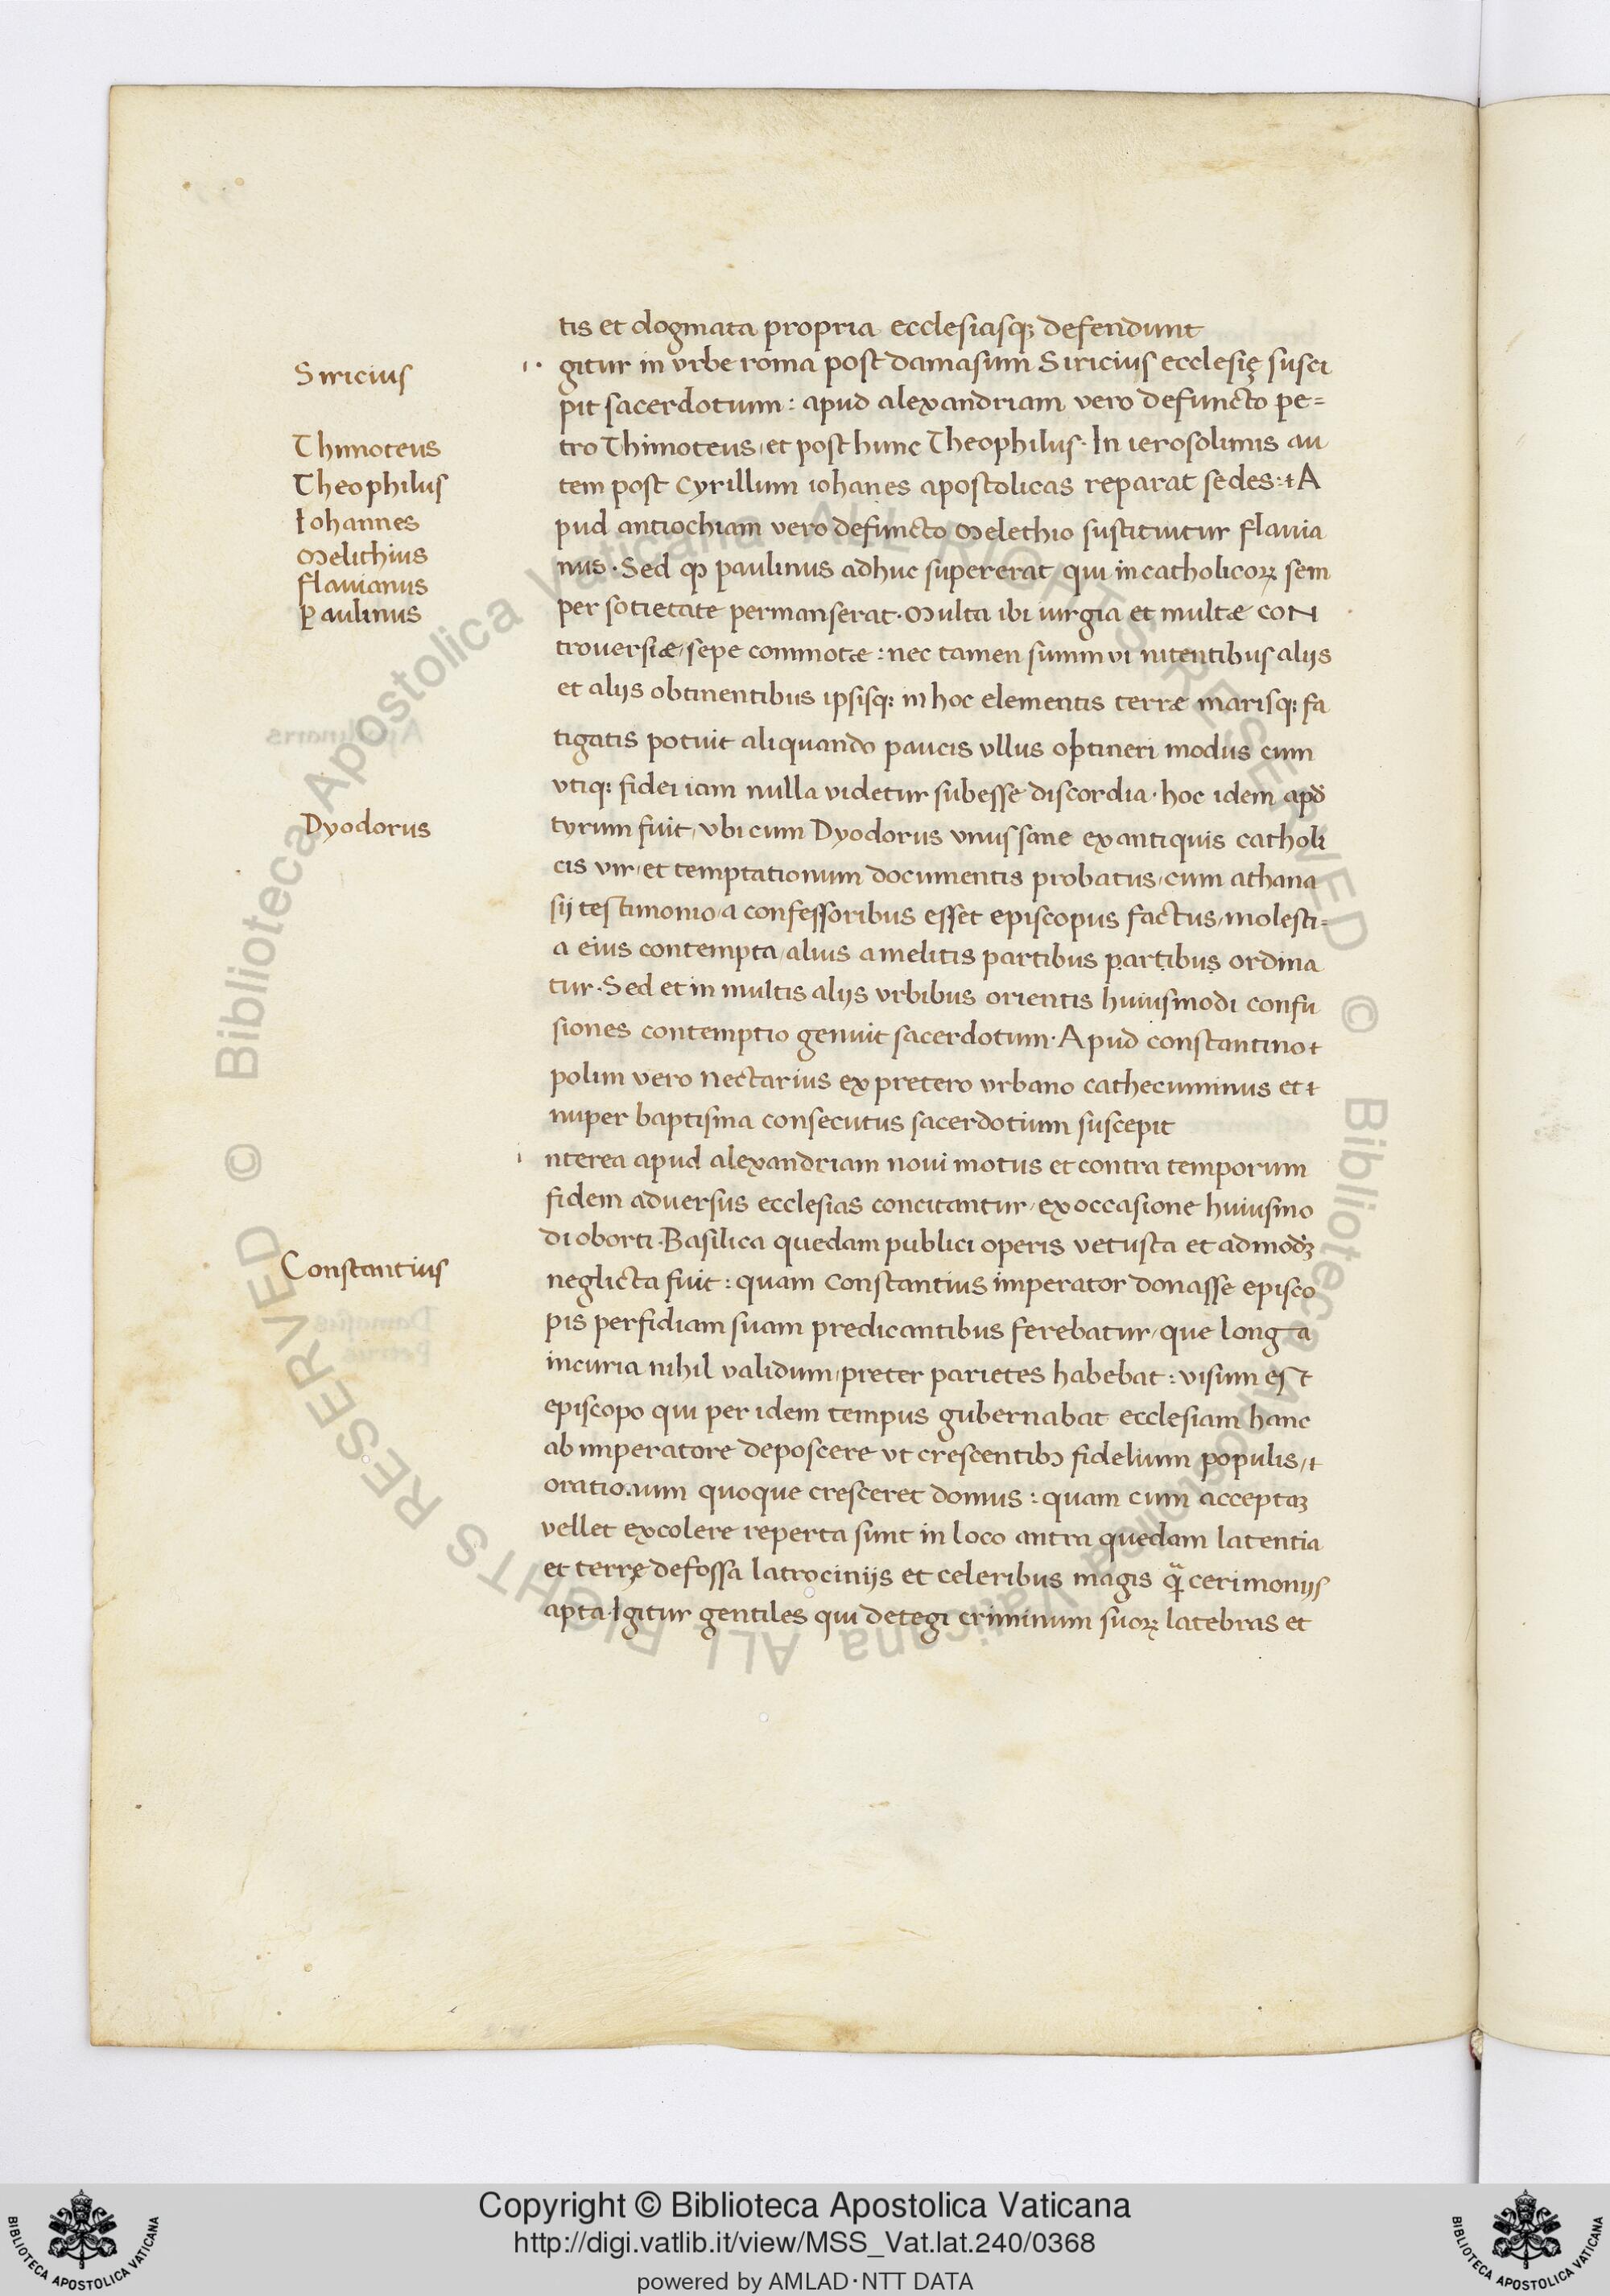 tis et dogmata propria ecclesiasq; defendunt
Siricius
i. gitur in vrbe roma post damasum Siricius ecclesię susci
pit sacerdotum : apud alexandriam vero defuncto pe=
Thimoteus
tro Thimoteus, et post hunc Theophilus. In ierosolimis au
Theophilus
tem post Cyrillum iohanes apostolicas reparat sedes : A
Iohannes
pud antiochiam vero defuncto Melethio sustituitur flauia
Melithius
Flauianus
nus. Sed qꝫ paulinus adhuc supererat qui in catholicoꝝ sem
Paulinus
per sotietate permanserat. Multa ibi iurgia et multæ coN
trouersiæ, sepe commotæ : nec tamen summ vi nitentibus alijs
et alijs obtinentibus ipsisq; in hoc elementis terræ marisq; fa
tigatis potuit aliquando paucis vllus optineri modus cum
vtiq; fidei iam nulla videtur subesse discordia. hoc idem apd̄
Dyodorus
tyrum fuit, vbi cum Dyodorus vnus sane ex antiquis catholi
cis vir, et temptationum documentis probatus, cum athana
sij testimonio, a confessoribus esset episcopus factus, molesti=
a eius contempta, alius a melitis partibus partibus ordina
tur. Sed et in multis alijs vrbibus orientis huiusmodi confu
siones contemptio genuit sacerdotum. Apud constantino
polim vero Nectarius ex pretero vrbano cathecuminus et
nuper baptisma consecutus sacerdotium suscepit
i nterea apud alexandriam noui motus et contra temporum
fidem aduersus ecclesias concitantur, ex occasione huiusmo
di oborti. Basilica quedam publici operis vetusta et admodꝫ
Constantius
neglicta fuit : quam Constantius imperator donasse episco
pis perfidiam suam predicantibus ferebatur, que longa
incuria nihil validum, preter parietes habebat : visum est
episcopo qui per idem tempus gubernabat ecclesiam hanc
ab imperatore deposcere vt crescentibꝫ fidelium populis,
orationum quoque cresceret domus : quam cum acceptaꝫ
vellet excolere reperta sunt in loco antra quedam latentia
et terrę defossa latrocinijs et celeribus magis qᷓ cerimonijs
apta. Igitur gentiles qui detegi criminum suoꝝ latebras et
© Biblioteca Apostolica Vaticana ALL RIGHTS RESERVED © Biblioteca Apostolica Vaticana ALL RIGHTS RESERVED
BIBLIOTECA APOSTOLICA VATICANA
Copyright © Biblioteca Apostolica Vaticana
http://digi.vatlib.it/view/MSS_Vat.lat.240/0368
powered by AMLAD·NTT DATA
BIBLIOTECA APOSTOLICA VATICANA